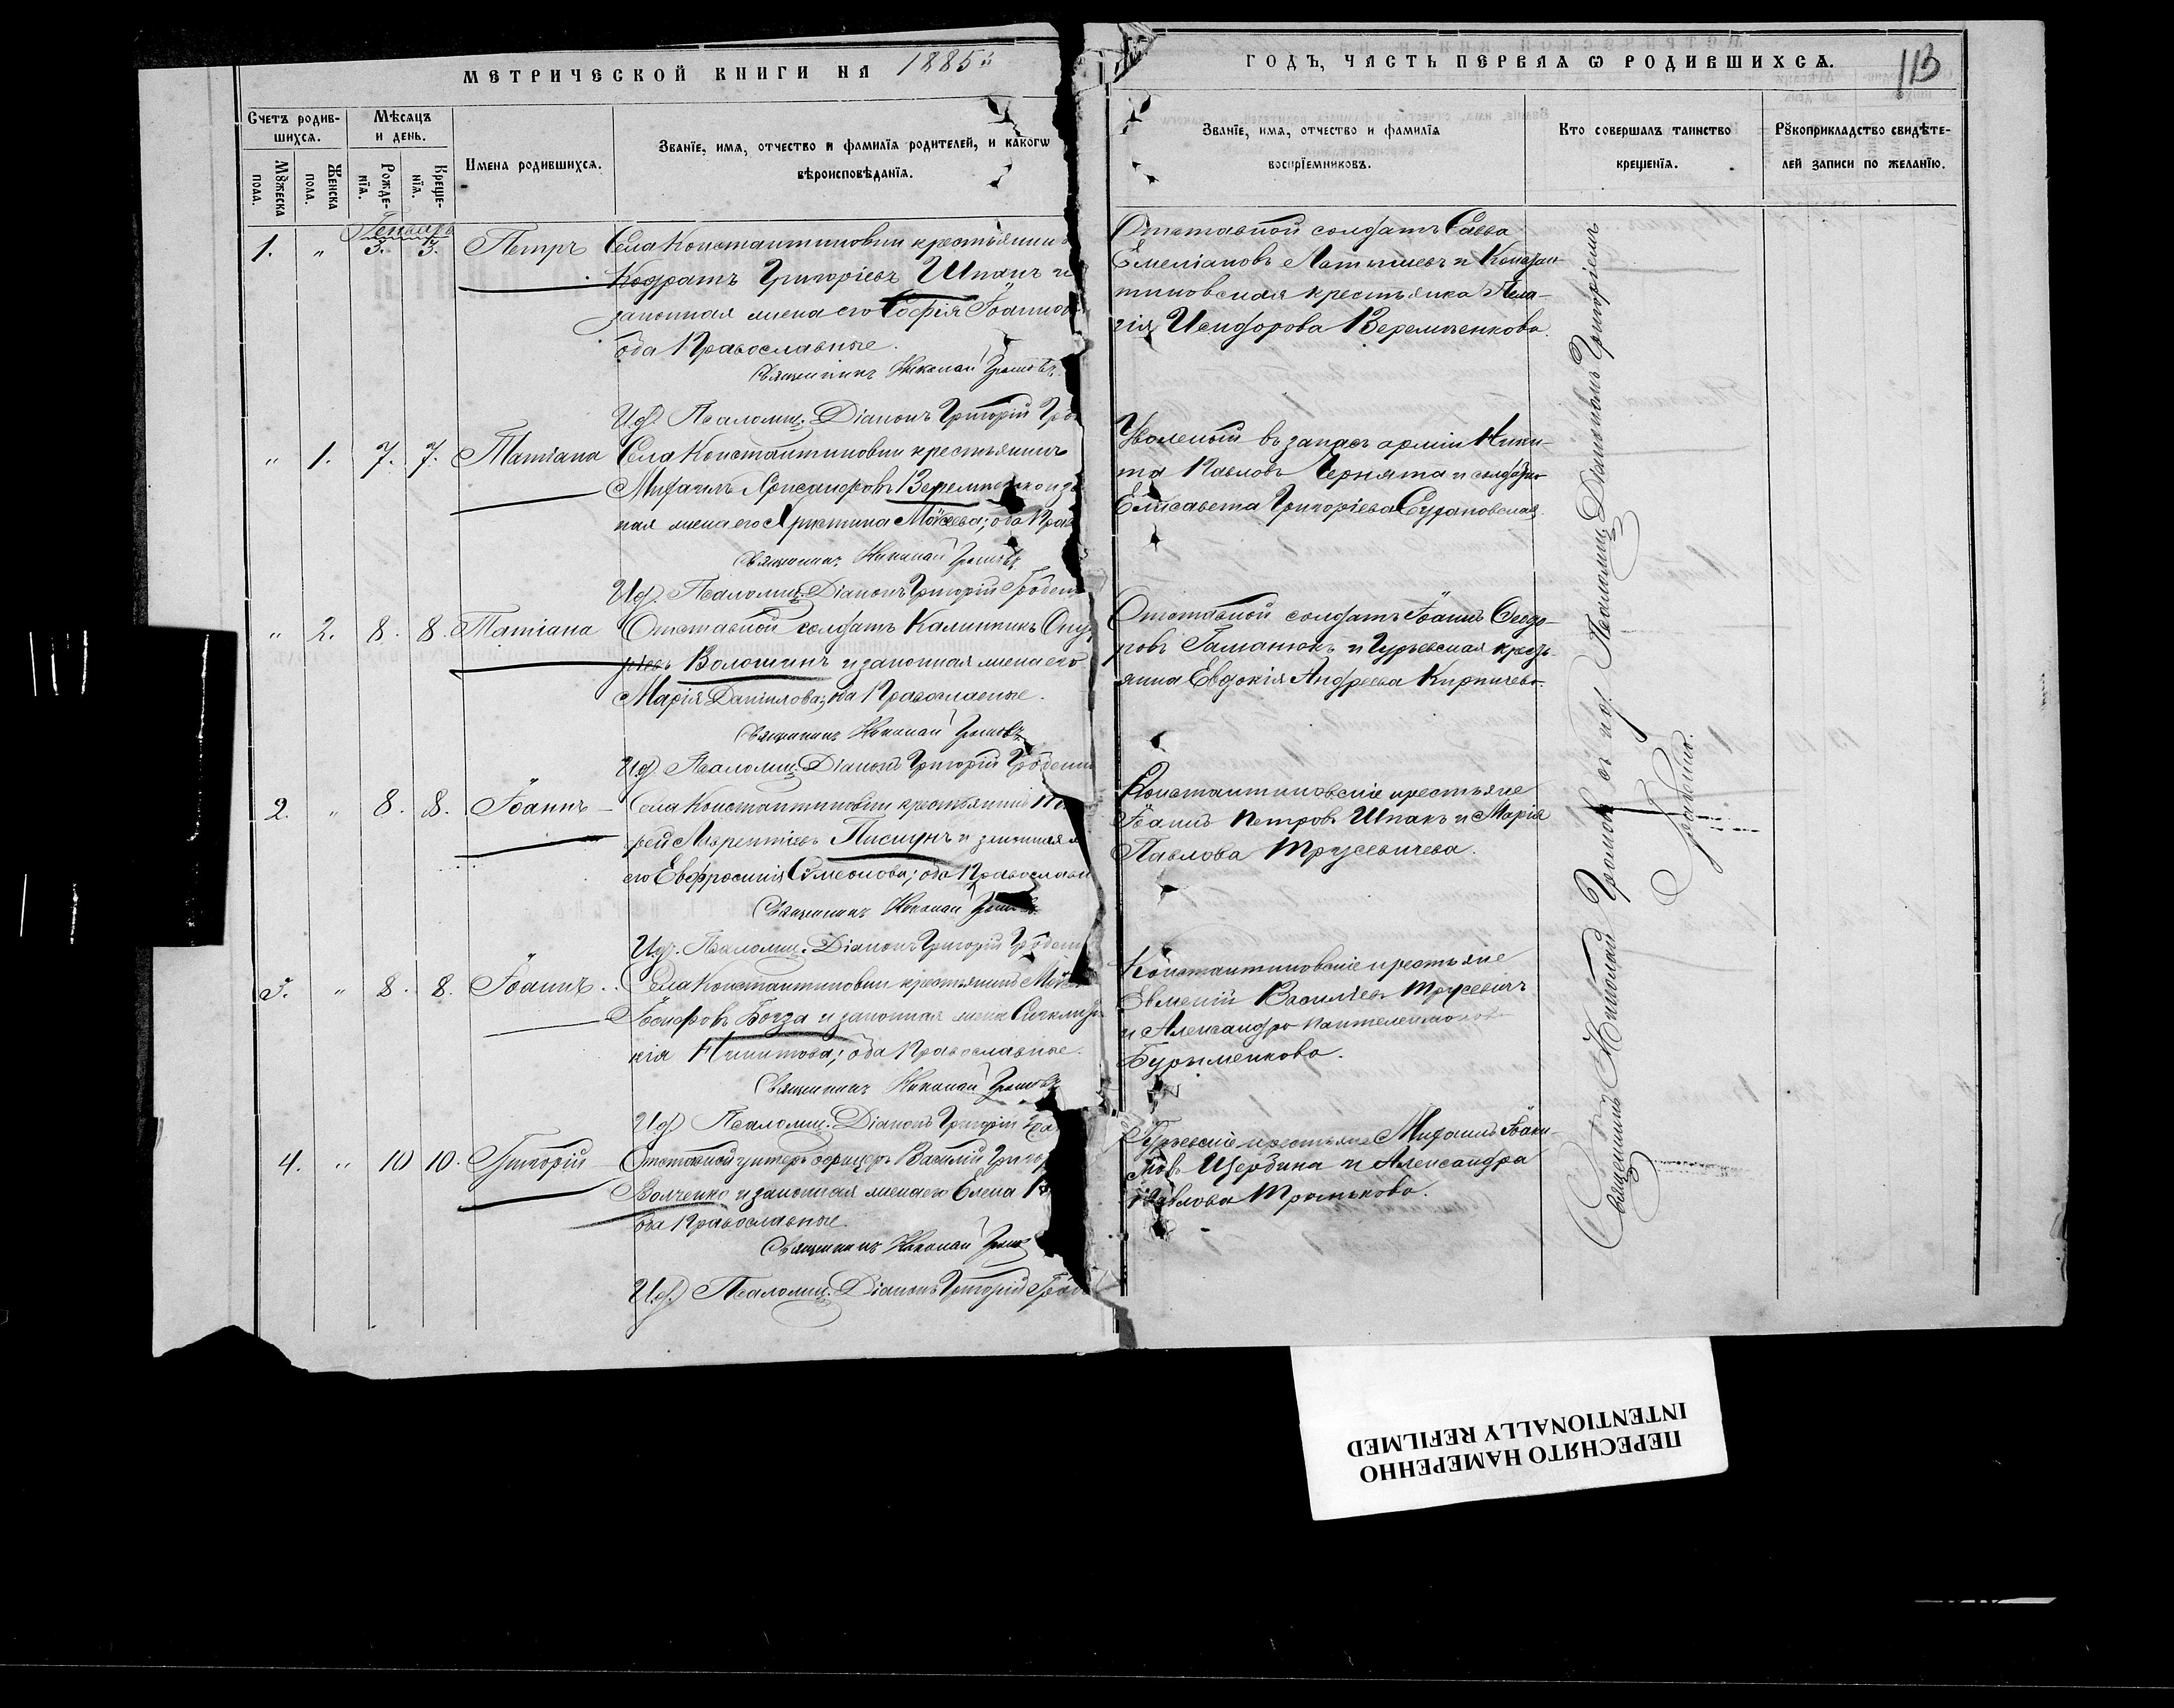 МЕТРИЧЕСКОЙ КНИГИ НА 1885й
ГОДЪ, ЧАСТЬ ПЕРВАЯ Ѡ РОДИВШИХСЯ.
113
Счетъ родив-
шихся.
Мѣсяцъ
и день.
Мꙋжеска
пола.
Женска
пола.
Рожде-
нїя.
Креще-
нїя.
Имена родившихся.
Званїе, имя, отчество и фамилїя родителей, и какогѡ
вѣроисповѣданїя.
Званїе, имя, отчество и фамилїя
воспрїемниковъ.
Кто совершалъ таинство
крещенїя.
Рꙋкоприкладство свидѣте-
лей записи по желанїю.
Генварь
1. " 3. 3. Петръ
Села Константиновки крестьянинъ
Кодратъ Григоріевъ Шпакъ и
законная жена его Софія Іоаннов
оба Православные.
Священникъ Николай Громовъ.
И. д. Псаломщ. Діаконъ Григорій Гро
Отставной солдатъ Савва
Емеліановъ Латышевъ и Констан-
тиновская крестьянка Пела-
гія Исидорова Веремѣенкова.
" 1. 7. 7. Татіана
Села Константиновки крестьянинъ
Михаилъ Хрисанфовъ Веремѣенко и за
ная жена его Христина Моѵсеева; оба Прав
Священникъ Николай Громовъ
И. д. Псаломщ. Діаконъ Григорій Гробени
Уволеный въ запасъ арміи Ники-
та Павловъ Чернята и солдатка
Елисавета Григоріева
" 2. 8. 8. Татіана
Отставной солдатъ Калинникъ
Волошинъ и законная жена его
Марія Даніилова; оба Православные.
Священникъ Николай Громовъ
И. д. Псаломщ. Діаконъ Григорій Гробени
Отставной солдатъ Іоаннъ Ѳеодо-
ровъ Гаманюкъ и Гурьевская кресть-
янка Евдокія Андреева Кирпичева.
2. " 8. 8. Іоаннъ
Села Константиновки крестьянинъ
Лаврентіевъ Пискунъ и законная ж
его Евфросинія Сѵмеонова; оба Православн
Священникъ Николай Громовъ
И. д. Псаломщ. Діаконъ Григорій Гробени
Константиновскіе крестьяне
Іоаннъ Петровъ Шпакъ и Марія
Павлова Трусевичева.
3. " 8. 8. Іоаннъ
Села Константиновки крестьянинъ
Іосифовъ Богза и законная жена
кія Никитова; оба Православные.
Священникъ Николай Громовъ
И. д. Псаломщ. Діаконъ Григорій Гро
Константиновскіе крестьяне
Евменій Васильевъ Трусевичъ
и Александра Пантелеимонова
Бурыменкова.
4. " 10 10. Григорій
Отставной унтеръ офицеръ Василій Григор
Волченко и законная жена его Елена
оба Православные.
Священникъ Николай Гром
И. д. Псаломщ. Діаконъ Григорій Гроб
Гурьевскіе крестьяне Михаилъ Іоан-
новъ Щербина и Александра
Павлова Тронькова.
Священникъ Николай Громовъ съ и. д. Псаломщ. Діакономъ Григоріемъ
ПЕРЕСНЯТО НАМЕРЕННО
INTENTIONALLY REFILMED